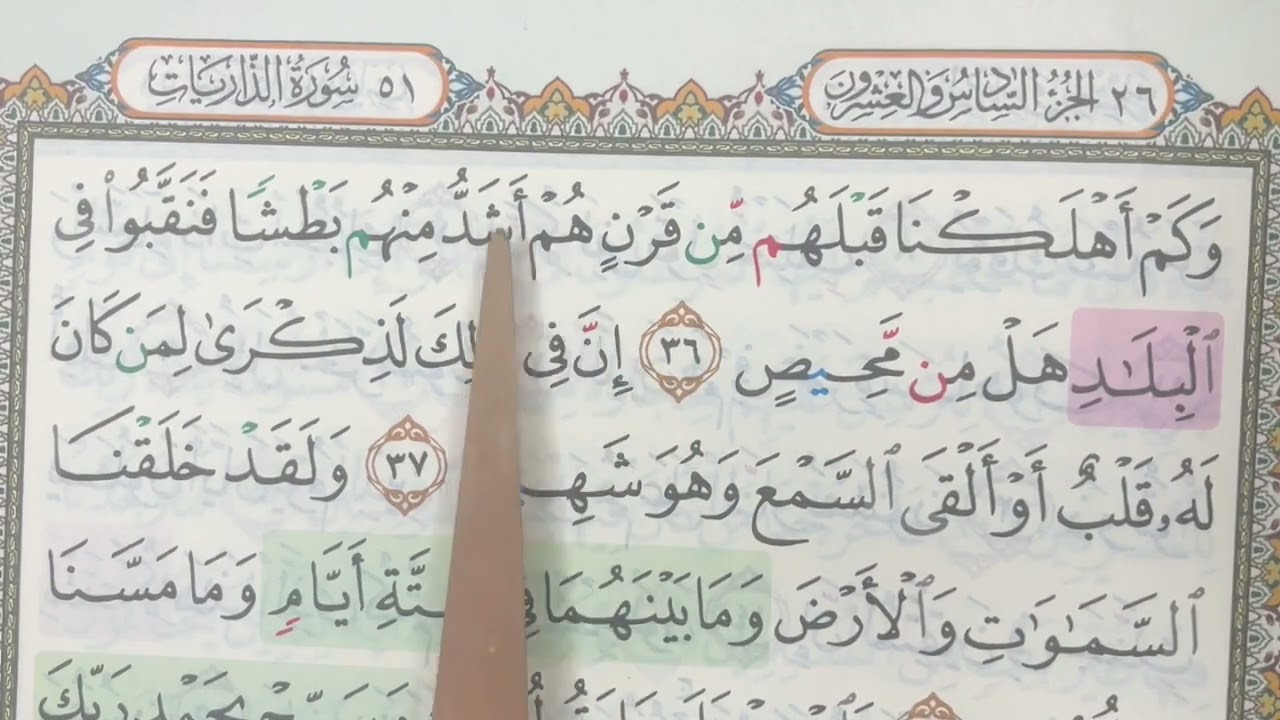 ٢٦ الجُزْءُ السَّادِسُ وَالعِشْرُونَ
٥١ سُورَةُ الذَّارِيَاتِ
وَكَمْ أَهْلَكْنَا قَبْلَهُم مِّن قَرْنٍ هُمْ أَشَدُّ مِنْهُم بَطْشًا فَنَقَّبُوا۟ فِى
ٱلْبِلَـٰدِ هَلْ مِن مَّحِيصٍ ٣٦ إِنَّ فِى لِكَ لَذِكْرَىٰ لِمَن كَانَ
لَهُۥ قَلْبٌ أَوْ أَلْقَى ٱلسَّمْعَ وَهُوَ شَهِي ٣٧ وَلَقَدْ خَلَقْنَا
ٱلسَّمَـٰوَٰتِ وَٱلْأَرْضَ وَمَا بَيْنَهُمَا فِى تَّةِ أَيَّامٍ وَمَا مَسَّنَا
بِحَمْدِ رَبِّكَ